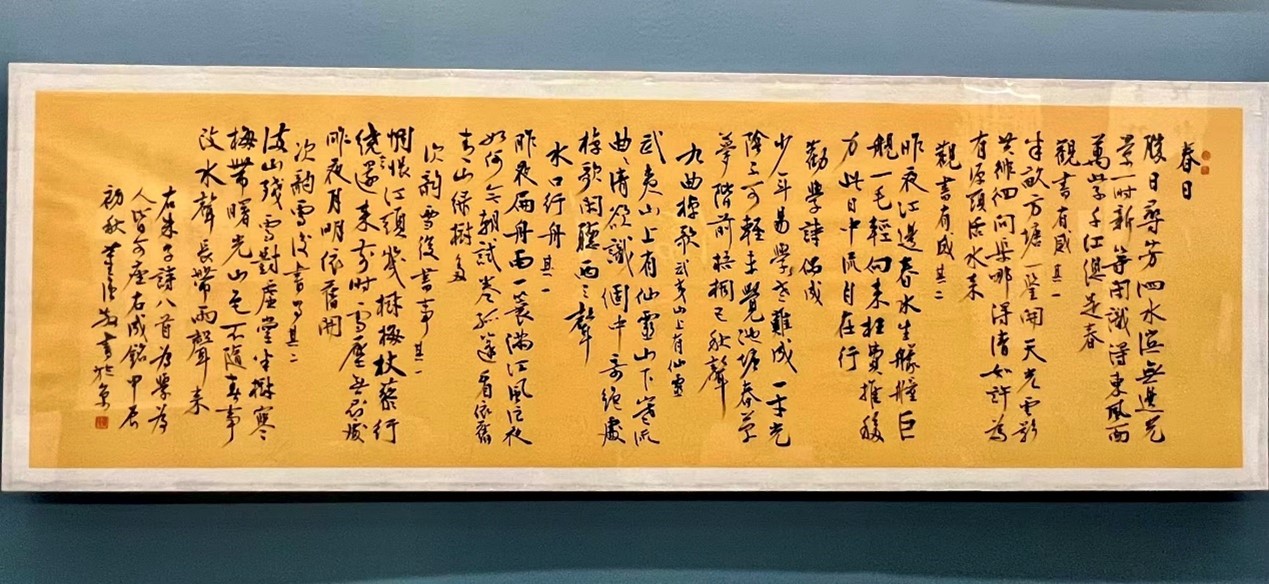 春日
勝日尋芳泗水濱無邊光
景一時新等閑識得東風面
萬紫千红總是春
觀書有感其一
半畝方塘一鑒開天光雲影
共徘徊問渠哪得清如許為
有源頭活水来
觀書有感其二
昨夜江邊春水生艨艟巨
艦一毛輕向来枉費推移
力此日中流自在行
勸學詩偶成
少年易學老難成一寸光
陰不可輕未覺池塘春草
夢階前梧桐已秋聲
九曲棹歌武夷山上有仙靈
武夷山上有仙靈山下寒流
曲曲清欲識個中奇絕處
棹歌閑聽兩三聲
水口行舟其一
昨夜扁舟雨一蓑滿江風浪夜
如何今朝試卷孤篷看依舊
青山綠樹多
次韵雪後書事其一
惆悵江頭幾樹梅杖藜行
繞還来前時雪壓無尋處
昨夜月明依舊開
次韵雪後書事其二
滿山殘雪對虛堂坐樹寒
梅帶曙光山色不隨春事
改水聲長帶雨聲来
右朱子詩八首為學為
人皆可座右成銘甲辰
初秋書於京